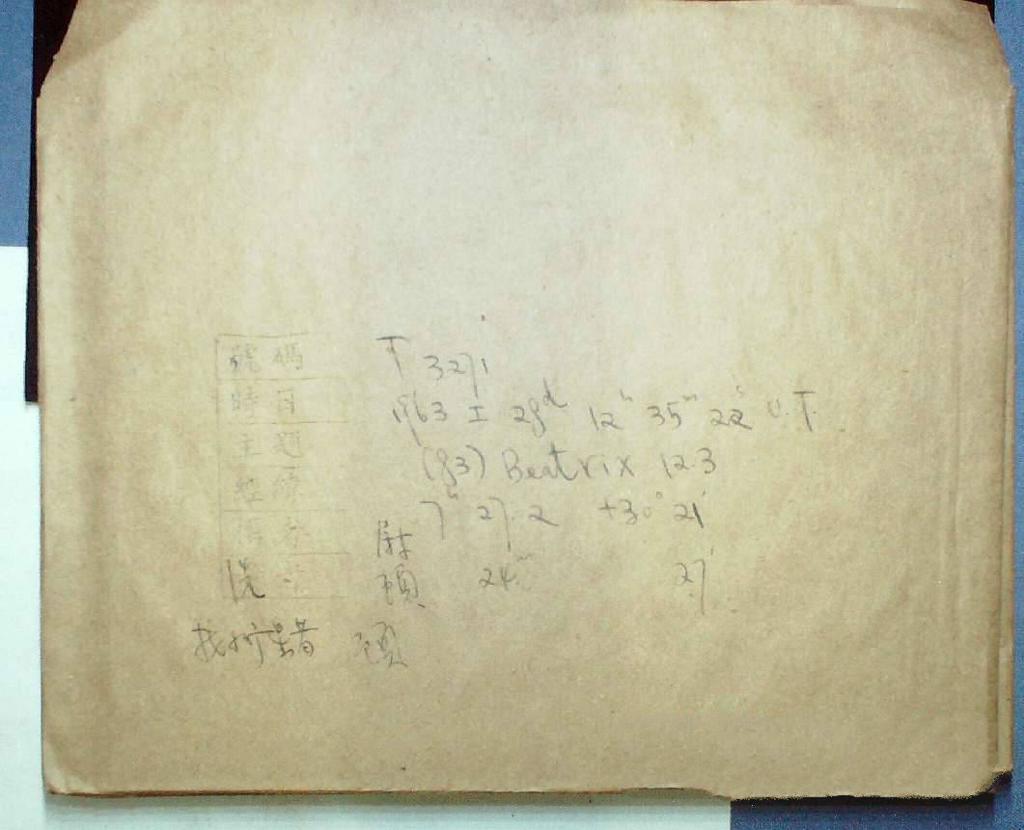 號碼 T 3271
時日 1963 I 28ᵈ 12ʰ 35ᵐ 22ˢ U.T.
主題 (83) Beatrix 12.3
經 7ʰ 27.2 +30° 21'
尉
洗 預 24ᵐ 27'
找小行星者 預